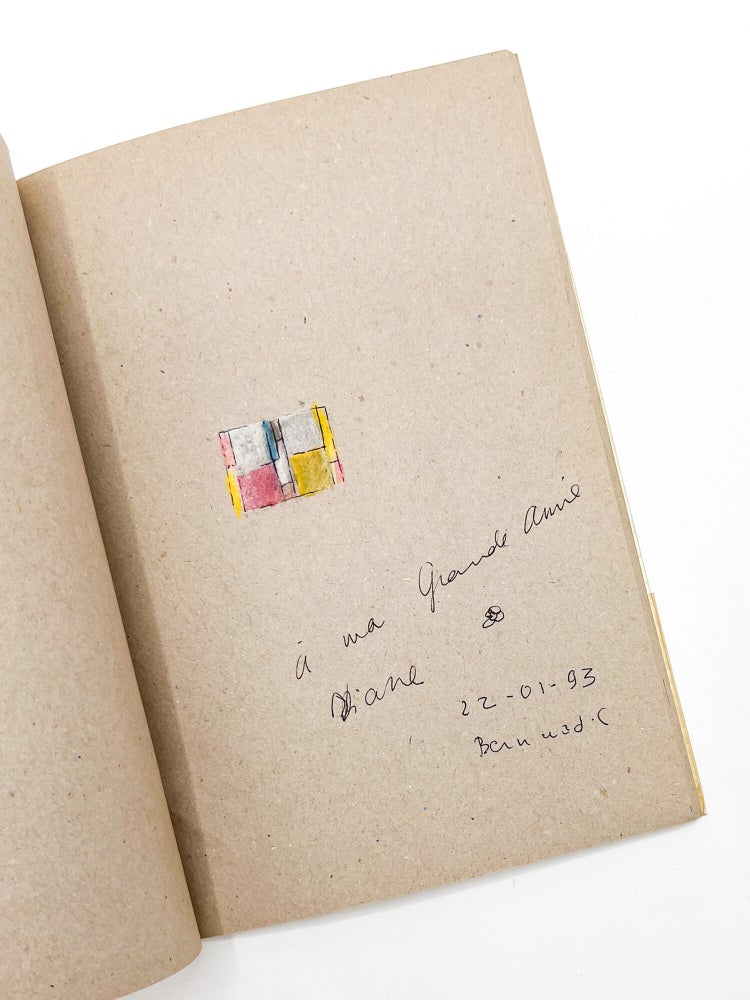 à ma Grande Amie
Diane
22-01-93
Bernard.C